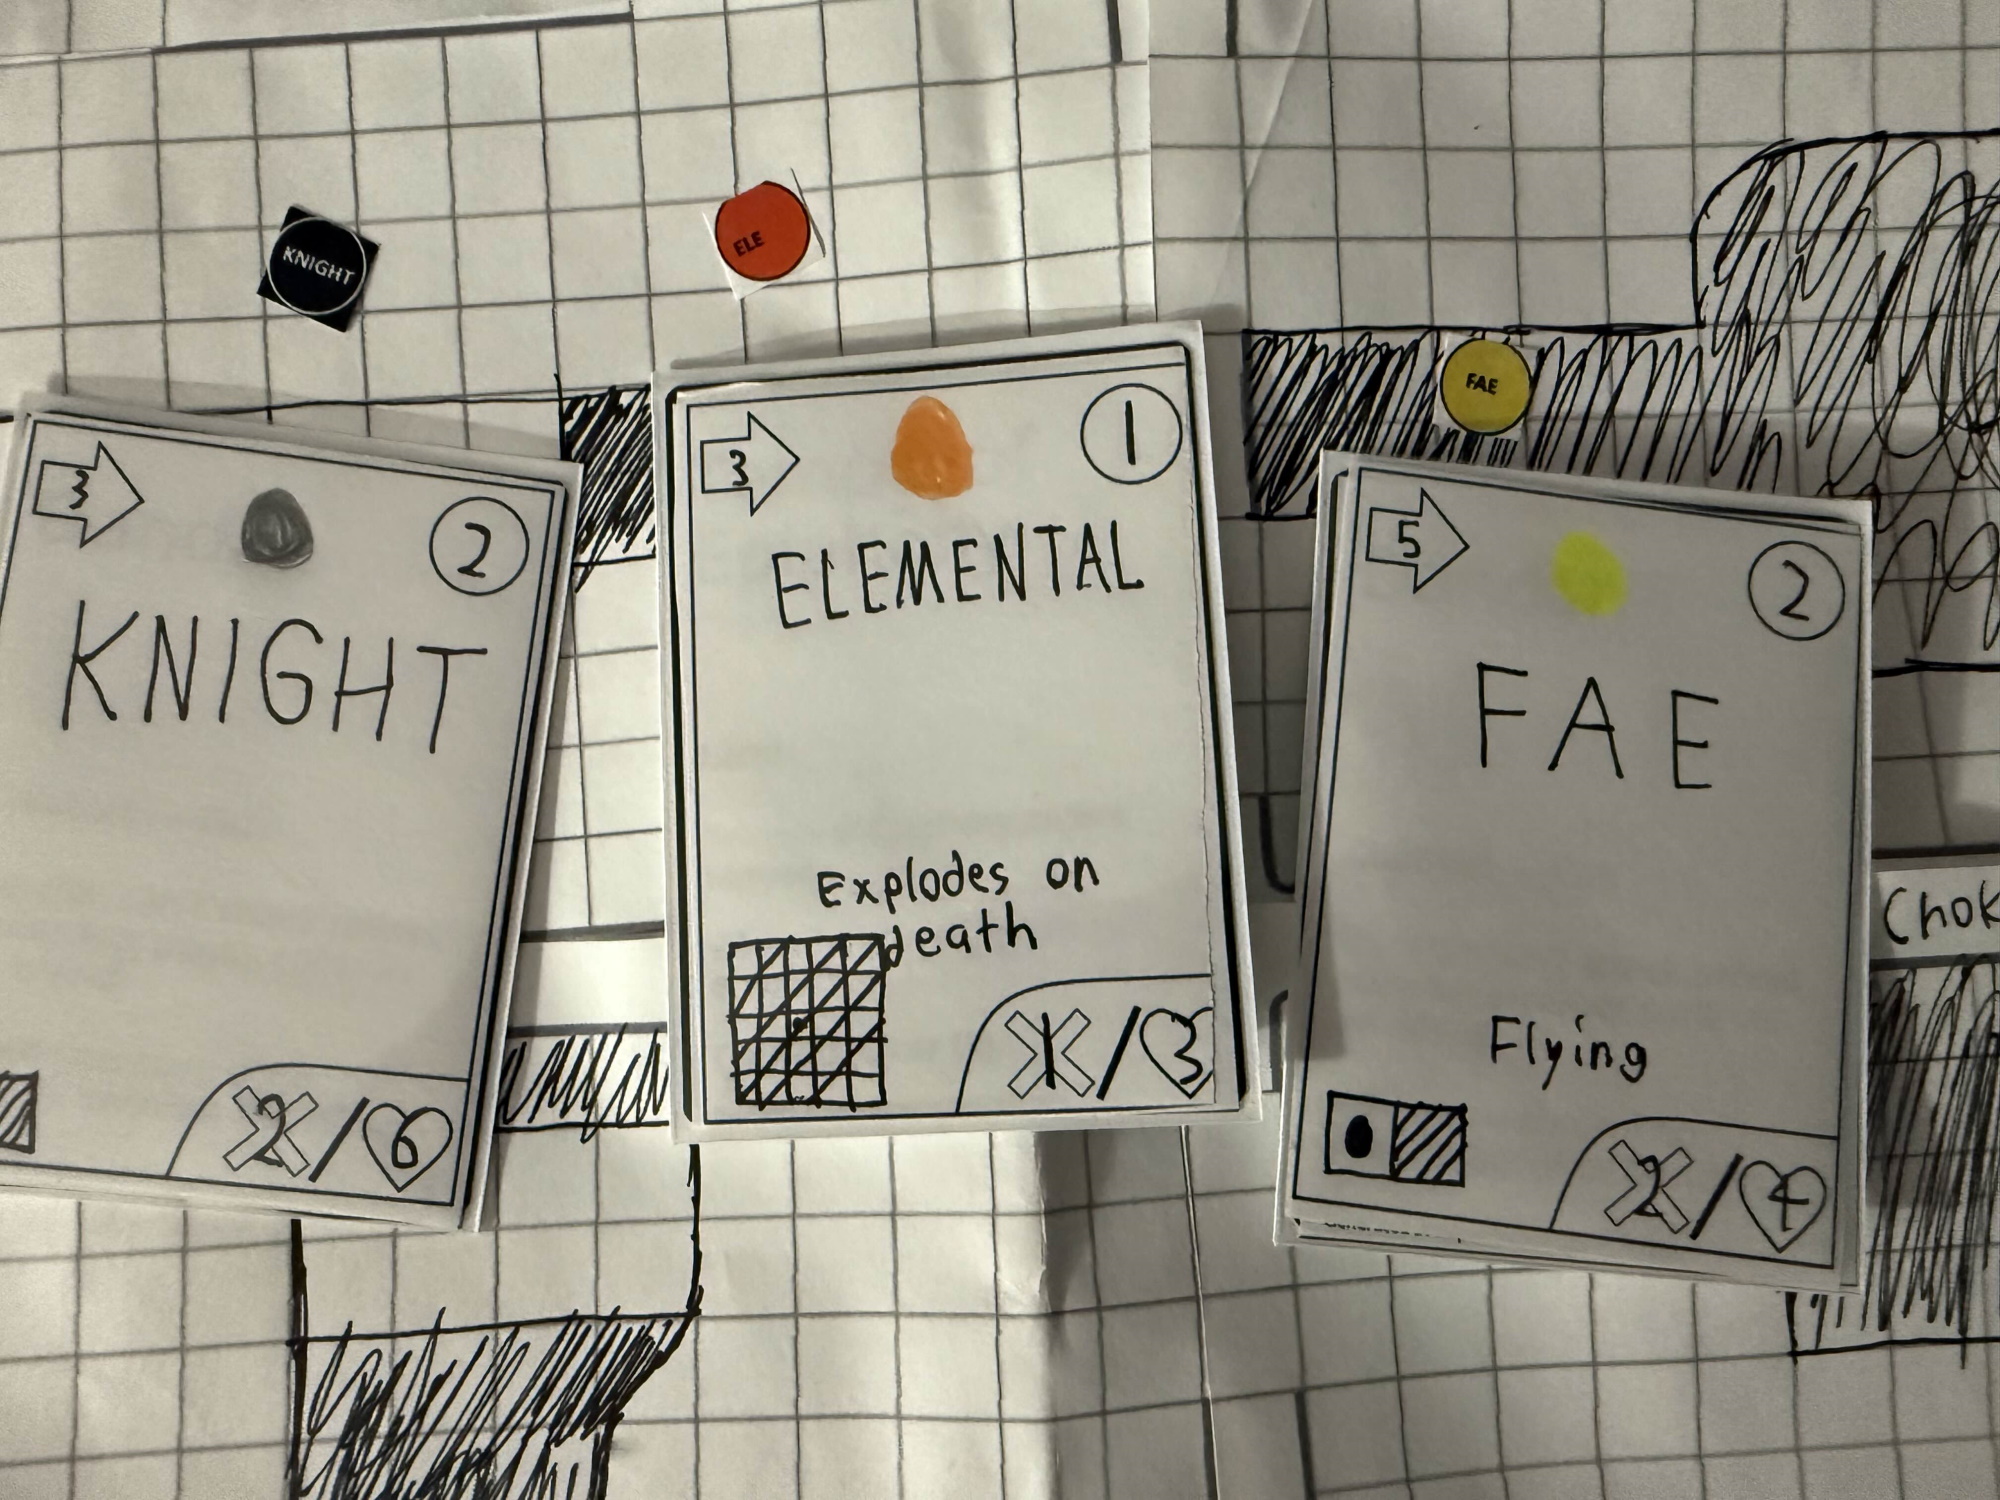 KNIGHT
ELE
FAE
3
2
KNIGHT
2/6
3
1
ELEMENTAL
Explodes on
death
1/3
5
2
FAE
Flying
2/4
Chok